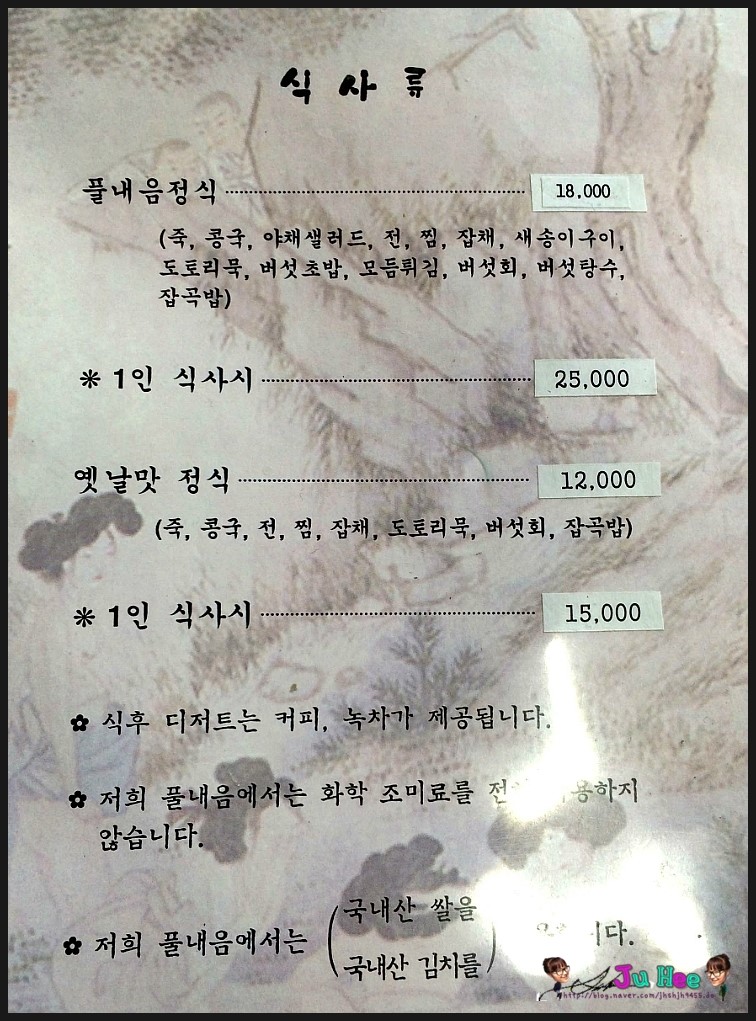 식 사 류
풀내음정식 18,000
(죽, 콩국, 야채샐러드, 전, 찜, 잡채, 새송이구이,
도토리묵, 버섯초밥, 모듬튀김, 버섯회, 버섯탕수,
잡곡밥)
※ 1인 식사시 25,000
옛날맛 정식 12,000
(죽, 콩국, 전, 찜, 잡채, 도토리묵, 버섯회, 잡곡밥)
※ 1인 식사시 15,000
✿ 식후 디저트는 커피, 녹차가 제공됩니다.
✿ 저희 풀내음에서는 화학 조미료를
않습니다.
✿ 저희 풀내음에서는 (국내산 쌀을
국내산 김치를)
Ju Hee